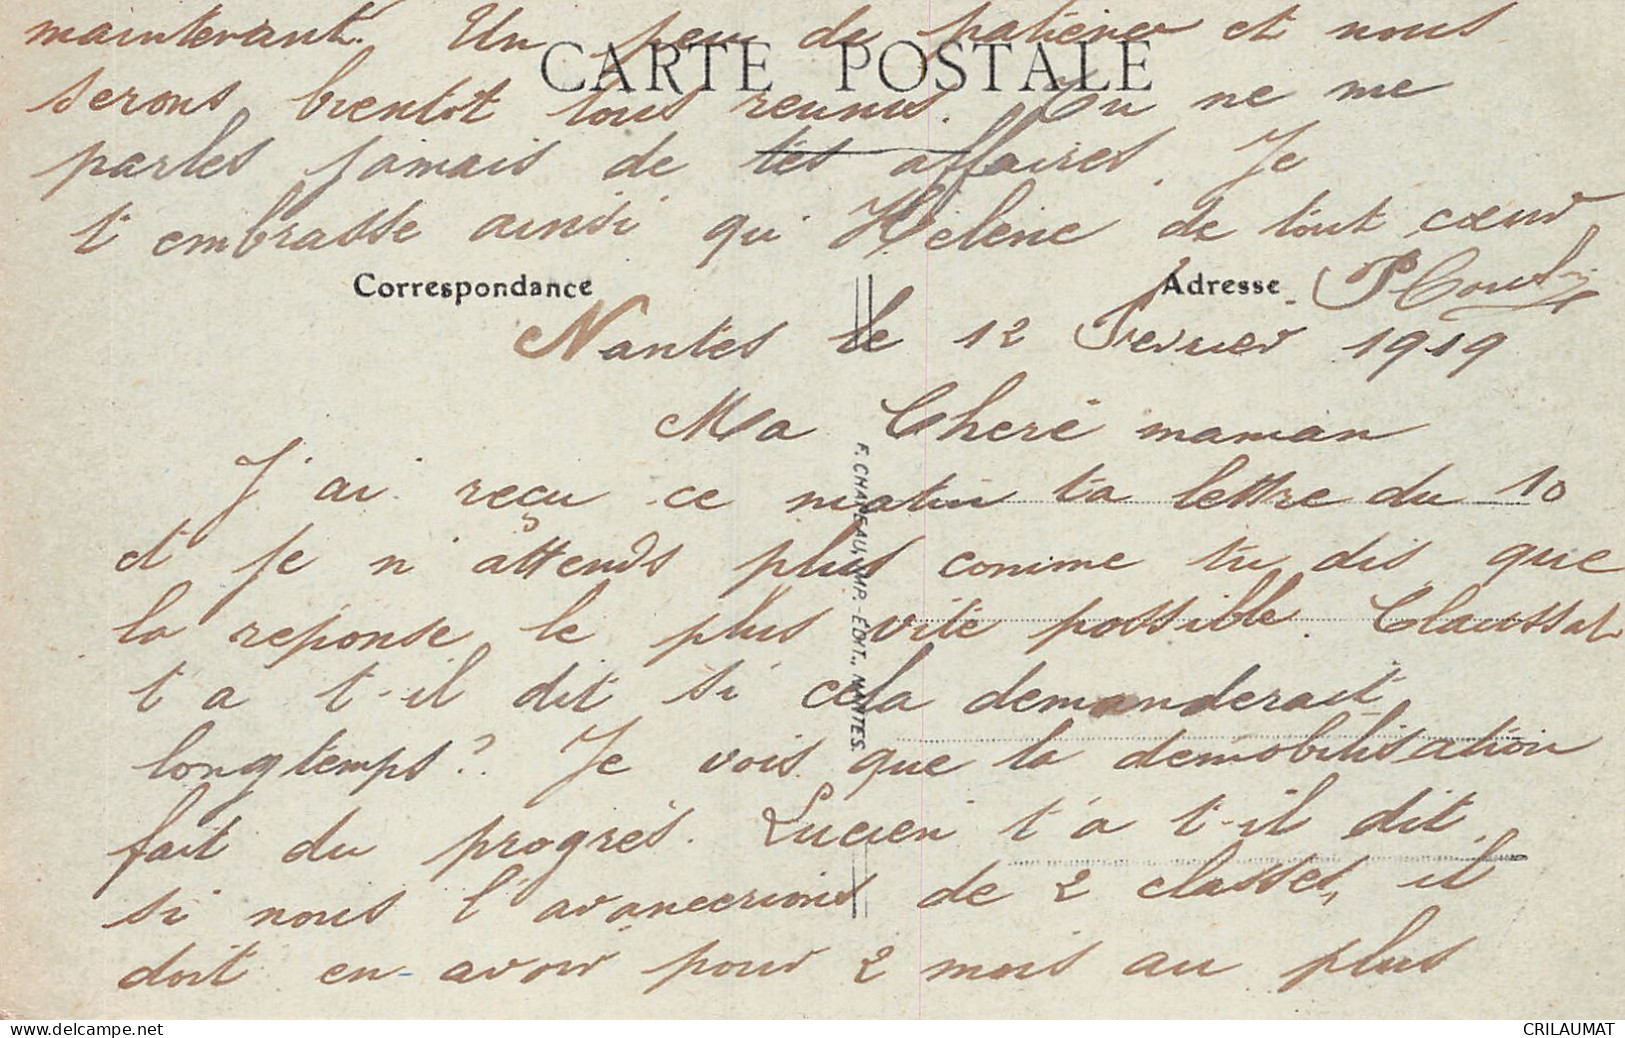 maintenant. Un peu de patience et nous
CARTE POSTALE
serons bientôt tous reunis. Tu ne me
parles jamais de tes affaires. Je
t'embrasse ainsi qu'Hélène de tout cœur
Correspondance
Adresse
Nantes le 12 Fevrier 1919
Ma Cheré maman
J'ai reçu ce matin ta lettre du 10
et je n'attends plus comme tu dis que
la reponse le plus vite possible. Claussat
t'a t-il dit si cela demanderait
longtemps? Je vois que la demobilisation
fait du progrés. Lucien t'a t-il dit
si nous l'avancerions de 2 classes, il
doit en avoir pour 2 mois au plus
F. CHAPEAU, IMP.-ÉDIT., NANTES.
www.delcampe.net
CRILAUMAT